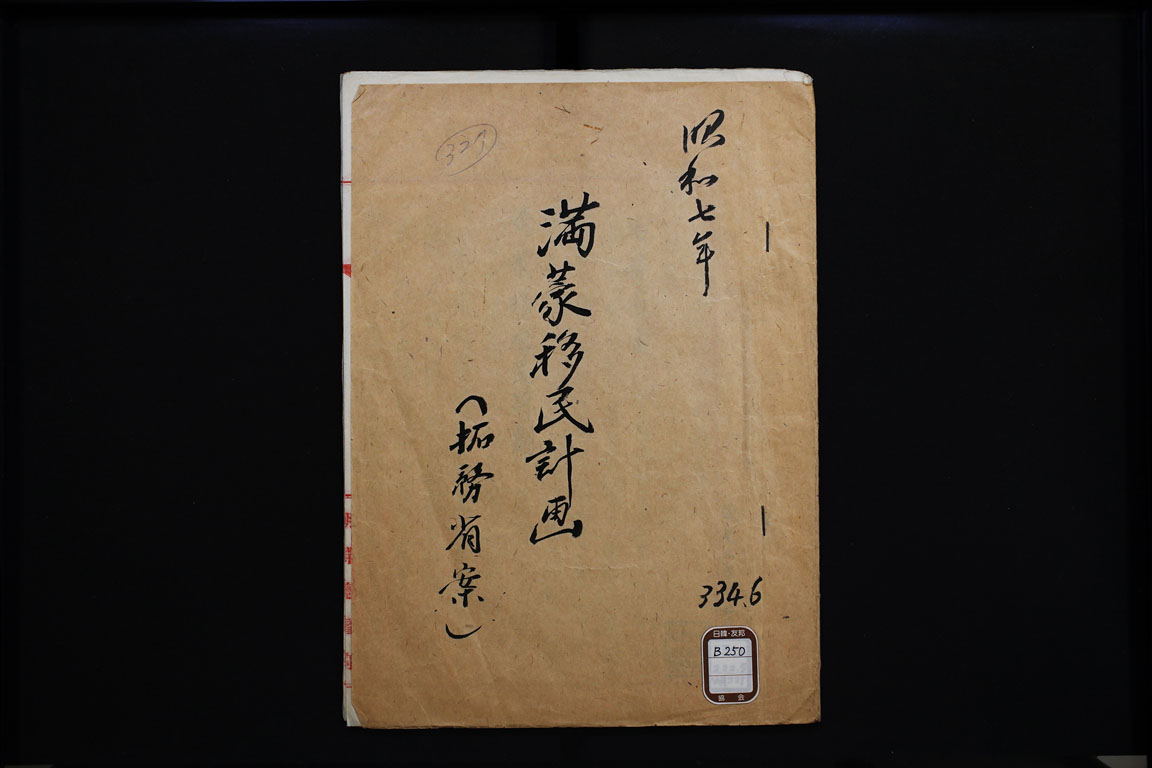 昭和七年
満蒙移民計画
（拓務省案）
334.6
日韓・友邦
B250
協会